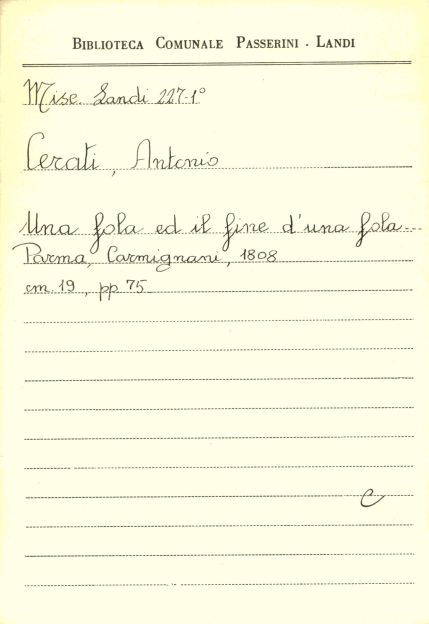 BIBLIOTECA COMUNALE PASSERINI - LANDI
Misc. Landi 227-1°
Cerati, Antonio
Una fola ed il fine d'una fola...
Parma, Carmignani, 1808
cm. 19, pp. 75
C